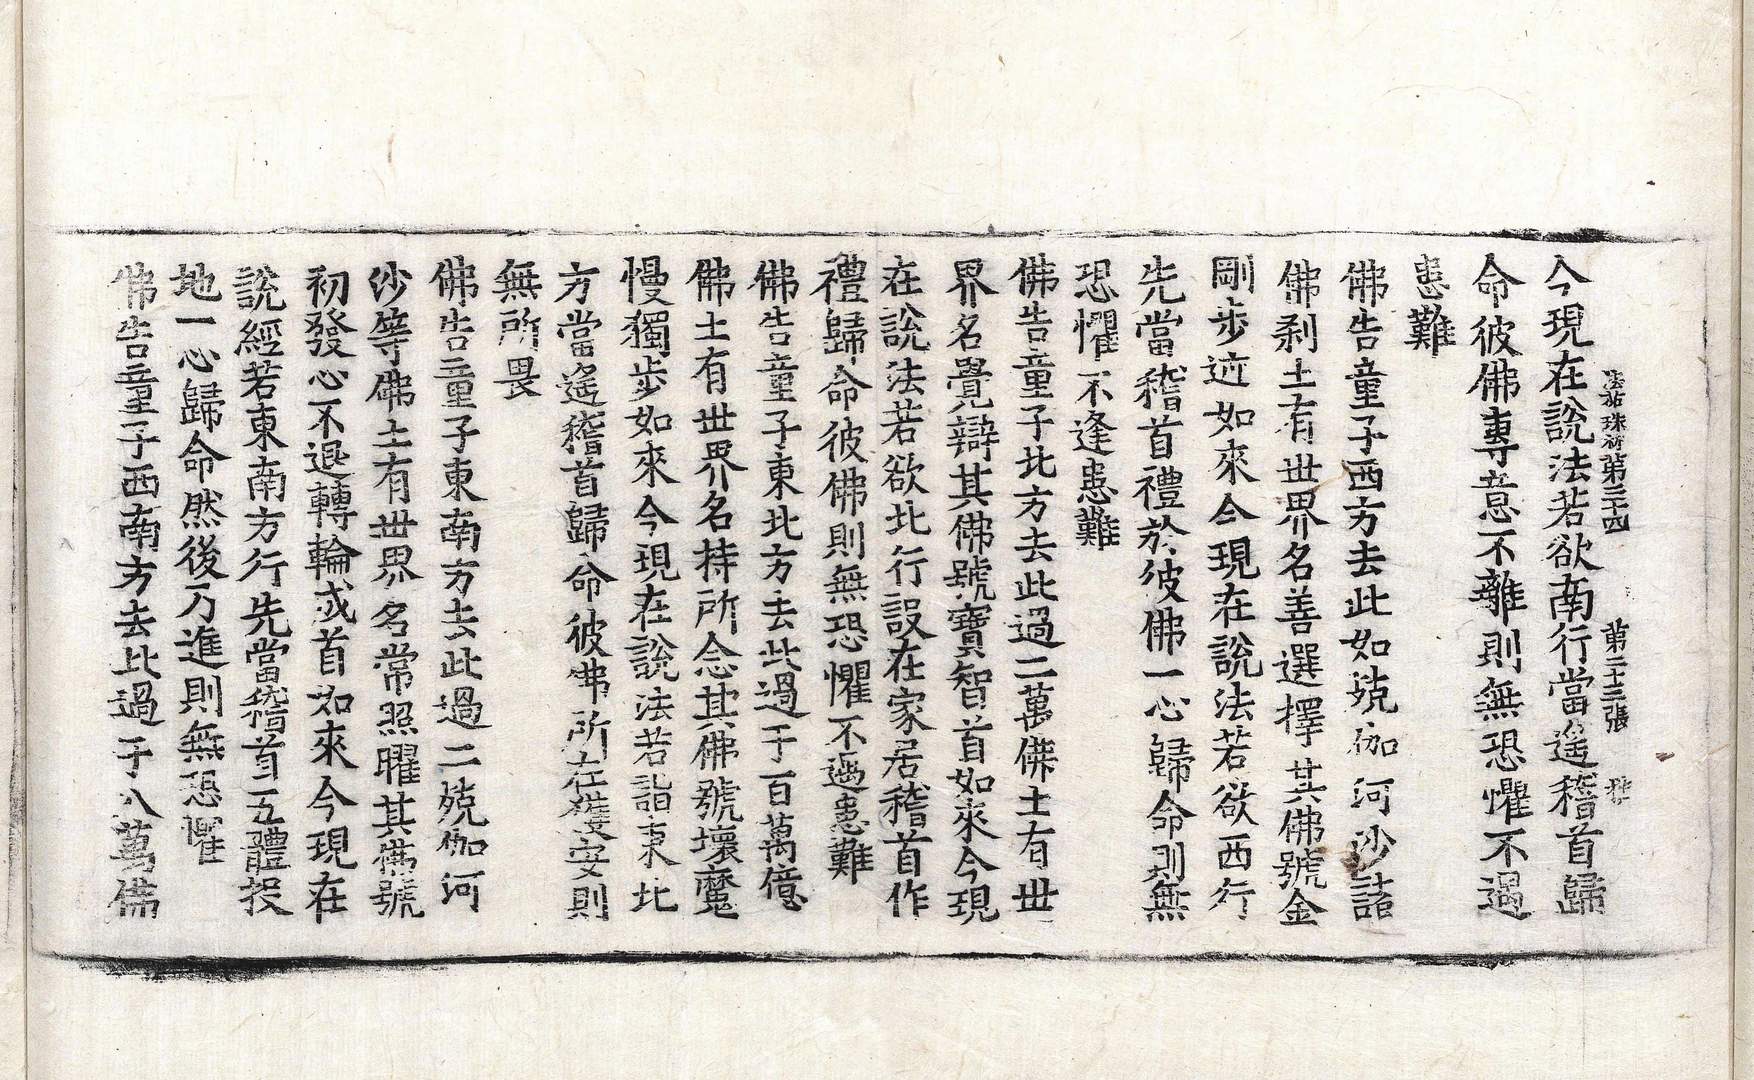 法苑珠林第三十四 第二十三張
今現在說法若欲南行當遥稽首歸
命彼佛專意不離則無恐懼不遇
患難
佛告童子西方去此如兢伽河沙諸
佛刹土有世界名善選擇其佛號金
剛步迹如來今現在說法若欲西行
先當稽首禮於彼佛一心歸命則無
恐懼不逢患難
佛告童子北方去此過二萬佛土有世
界名覺辯其佛號寶智首如來今現
在說法若欲北行設在家居稽首作
禮歸命彼佛則無恐懼不遇患難
佛告童子東北方去此過于百萬億
佛土有世界名持所念其佛號壞魔
慢獨步如來今現在說法若詣東北
方當遥稽首歸命彼佛所在獲安則
無所畏
佛告童子東南方去此過二兢伽河
沙等佛土有世界名常照曜其佛號
初發心不退轉輪成首如來今現在
說經若東南方行先當稽首五體投
地一心歸命然後乃進則無恐懼
佛告童子西南方去此過于八萬佛